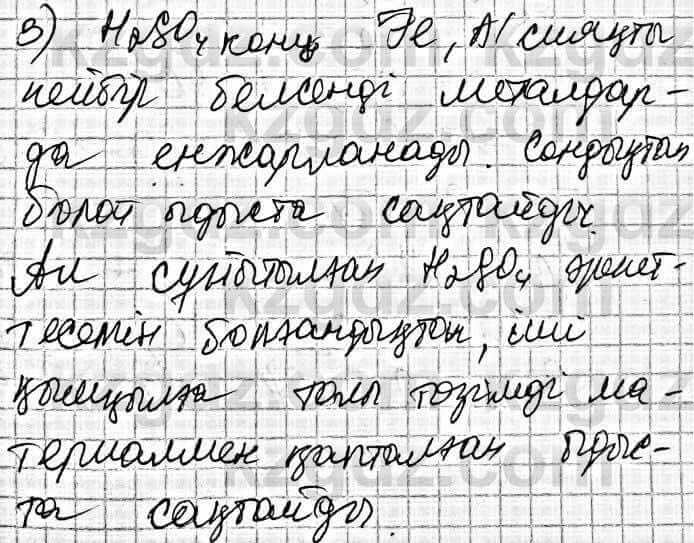 3) H₂SO₄ конц Fe, Al сияқты
кейбір белсенді металдар-
да енжарланады. Сондықтан
болат ыдыста сақтайды.
Ал сұйытылған H₂SO₄ әрекет-
тесетін болғандықтан, іші
қышқылға толы төзімді ма-
териалмен қапталған ыдыс-
та сақтайды